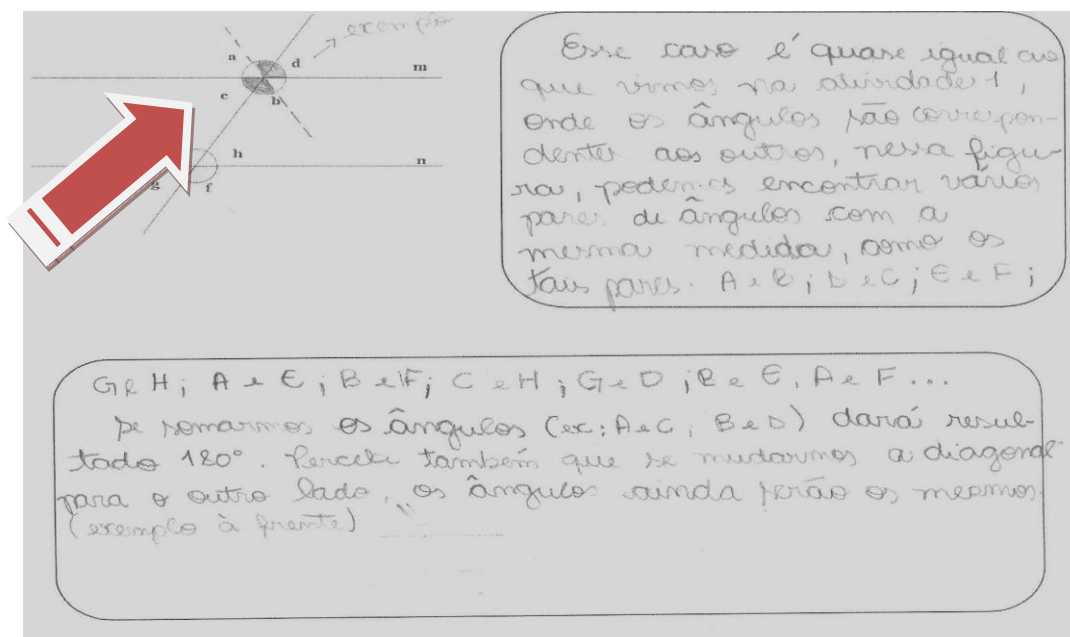 exemplo
a
d
m
c
b
h
n
g
f
Esse caso é quase igual ao
que vimos na atividade 1,
onde os ângulos são correspon-
dentes aos outros, nessa figu-
ra, podemos encontrar vários
pares de ângulos com a
mesma medida, como os
tais pares. A e B; D e C; E e F;
G e H; A e E; B e F; C e H; G e D; B e E, A e F...
Se somarmos os ângulos (ex: A e C; B e D) dará resul-
tado 180°. Percebi também que se mudarmos a diagonal
para o outro lado, os ângulos ainda serão os mesmos.
(exemplo à frente)